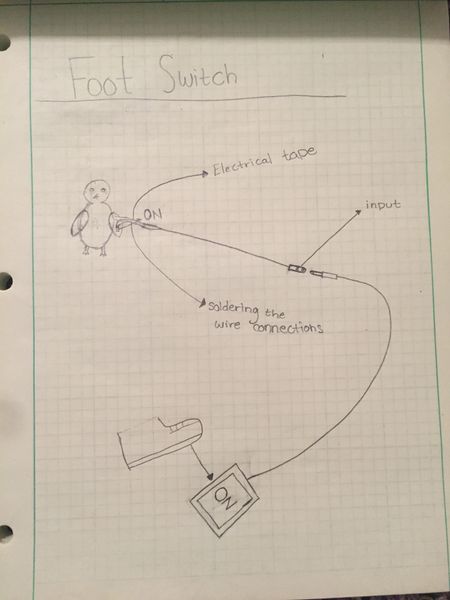 Foot Switch
Electrical tape
ON
input
Soldering the
wire connections
ON